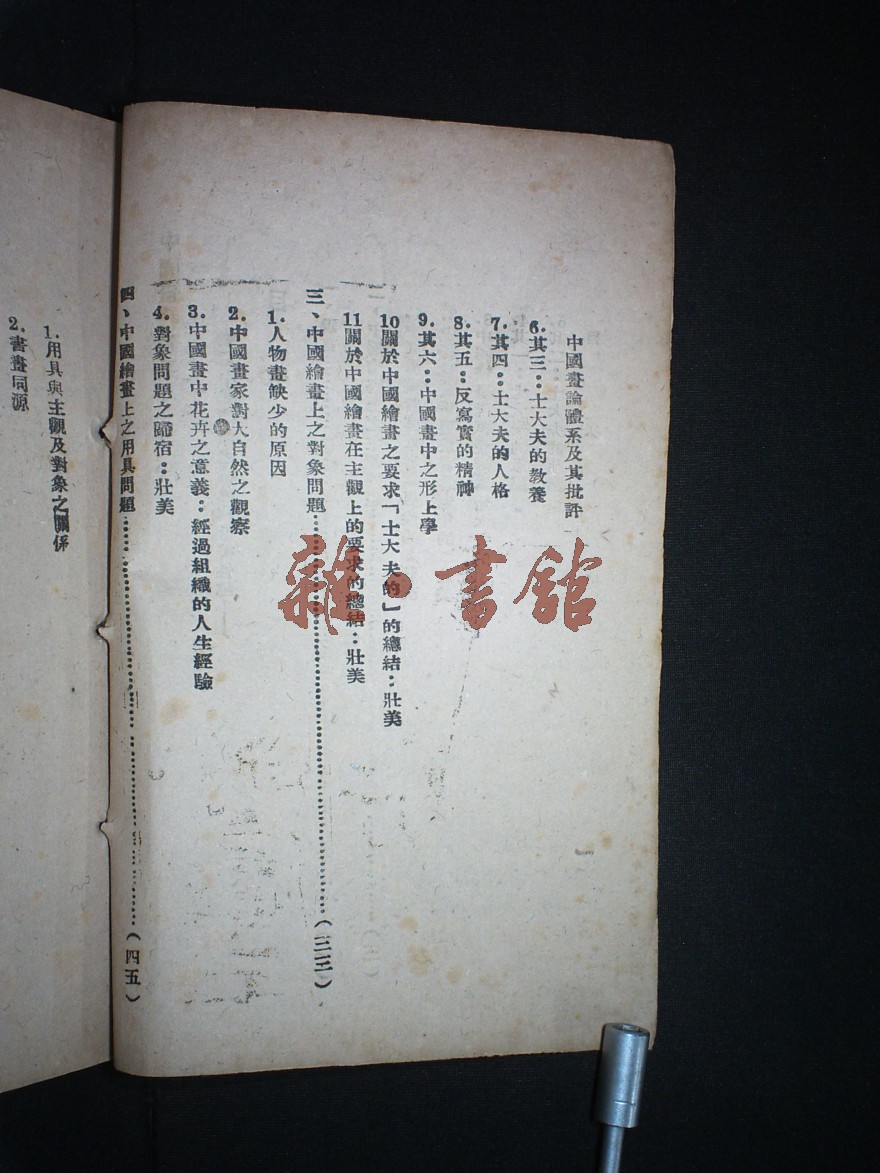 中國畫論體系及其批評
6.其三:士大夫的教養
7.其四:士大夫的人格
8.其五:反寫實的精神
9.其六:中國畫中之形上學
10關於中國繪畫之要求「士大夫的」的總結:壯美
11關於中國繪畫在主觀上的要求的總結:壯美
三、中國繪畫上之對象問題……(三三)
1.人物畫缺少的原因
2.中國畫家對大自然之觀察
3.中國畫中花卉之意義:經過組織的人生經驗
4.對象問題之歸宿:壯美
四、中國繪畫上之用具問題……(四五)
1.用具與主觀及對象之關係
2.書畫同源
雜·書館